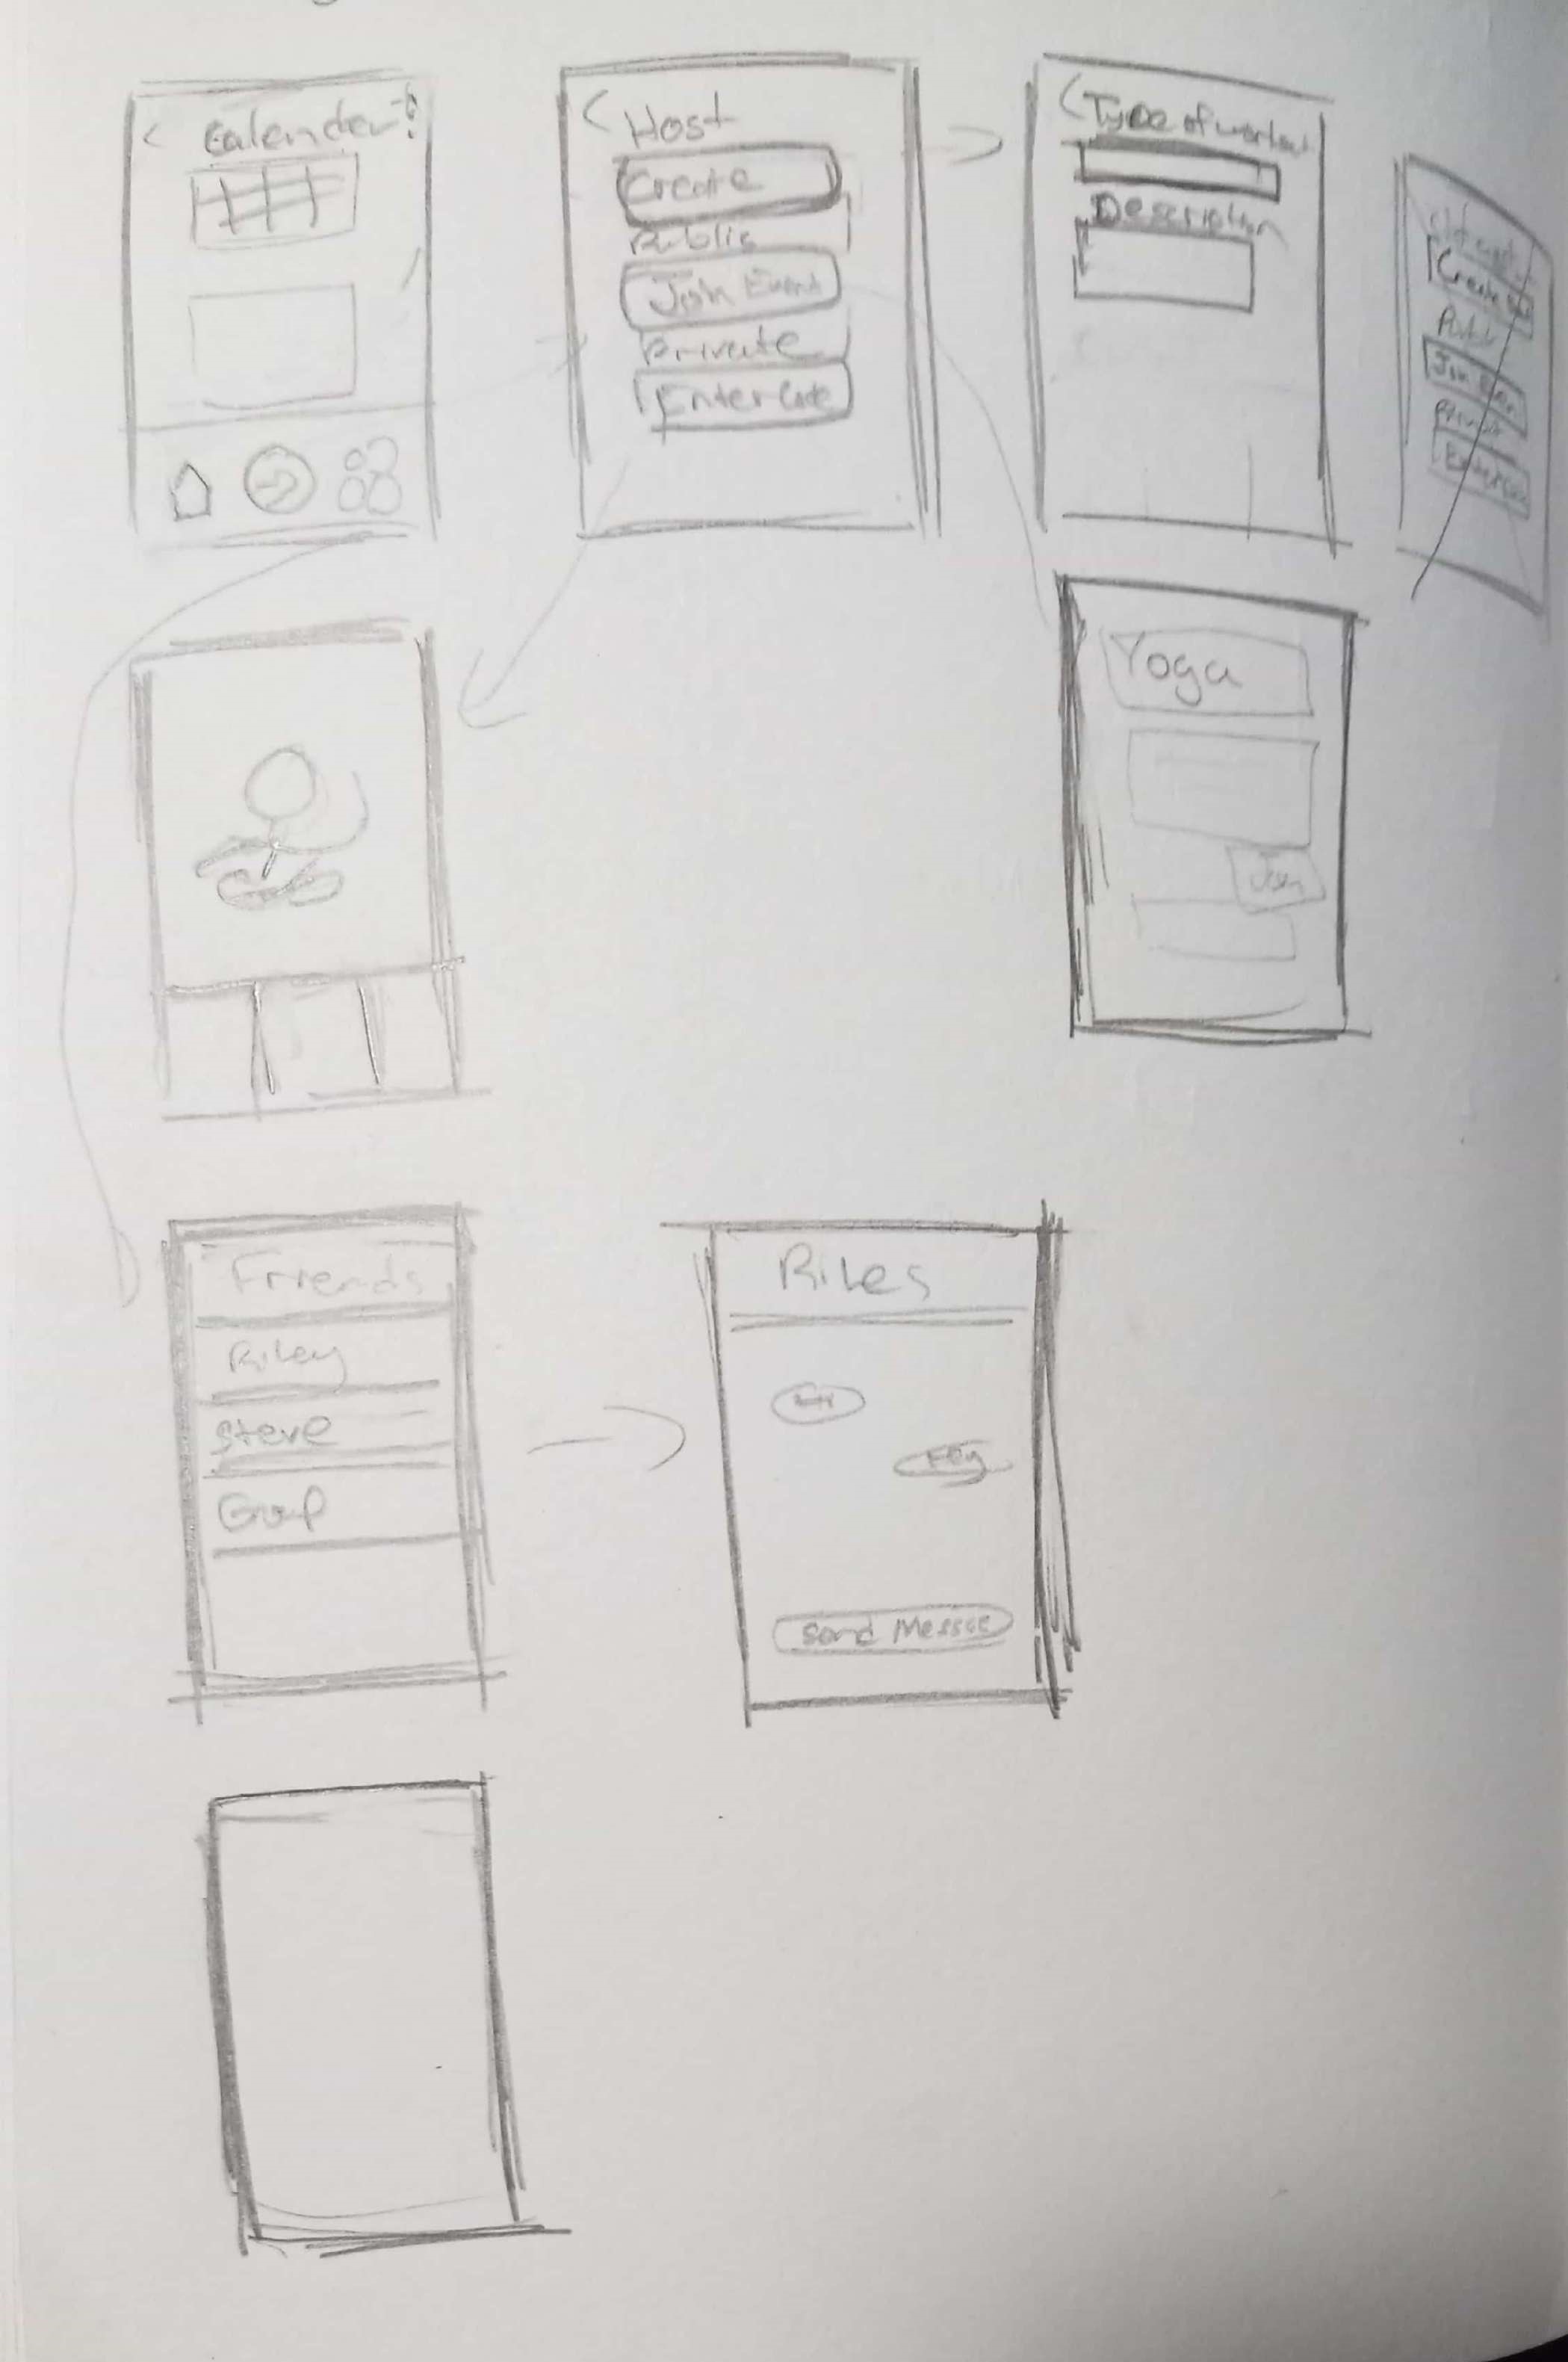 Calender
Host
Create
Public
Join Event
Private
Enter Code
Type of workout
Description
Create
Join Even
Yoga
Join
Friends
Riley
Steve
Group
Riley
Hi
Hey
Send Messge